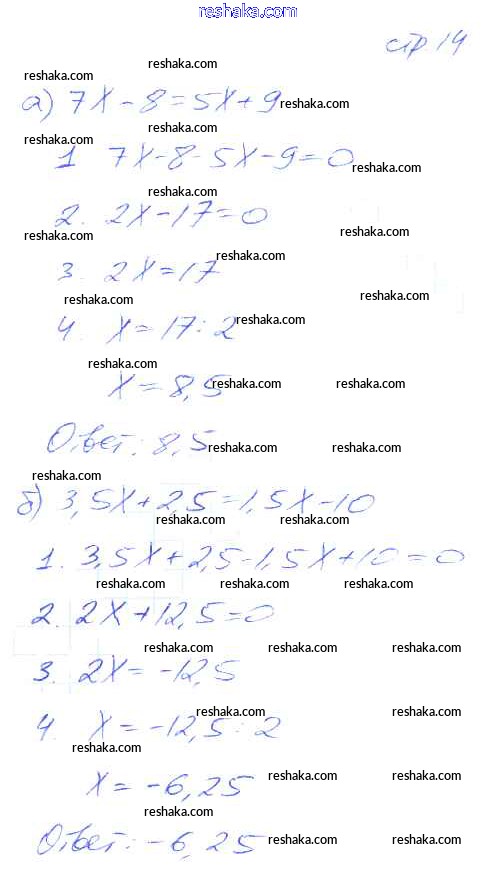 reshaka.com
стр 14
reshaka.com
reshaka.com
а) 7x - 8 = 5x + 9 reshaka.com
reshaka.com
reshaka.com
1 7x - 8 - 5x - 9 = 0 reshaka.com
reshaka.com
2. 2x - 17 = 0
reshaka.com reshaka.com
reshaka.com
3. 2x = 17
reshaka.com reshaka.com
4. x = 17 : 2 reshaka.com
reshaka.com
x = 8,5 reshaka.com reshaka.com
Ответ: 8,5 reshaka.com reshaka.com
reshaka.com
б) 3,5x + 2,5 = 1,5x - 10
reshaka.com reshaka.com
1. 3,5x + 2,5 - 1,5x + 10 = 0
reshaka.com reshaka.com reshaka.com
2. 2x + 12,5 = 0
reshaka.com reshaka.com reshaka.com
3. 2x = -12,5
reshaka.com reshaka.com
4. x = -12,5 : 2
reshaka.com
x = -6,25 reshaka.com reshaka.com
reshaka.com
Ответ: -6,25 reshaka.com reshaka.com